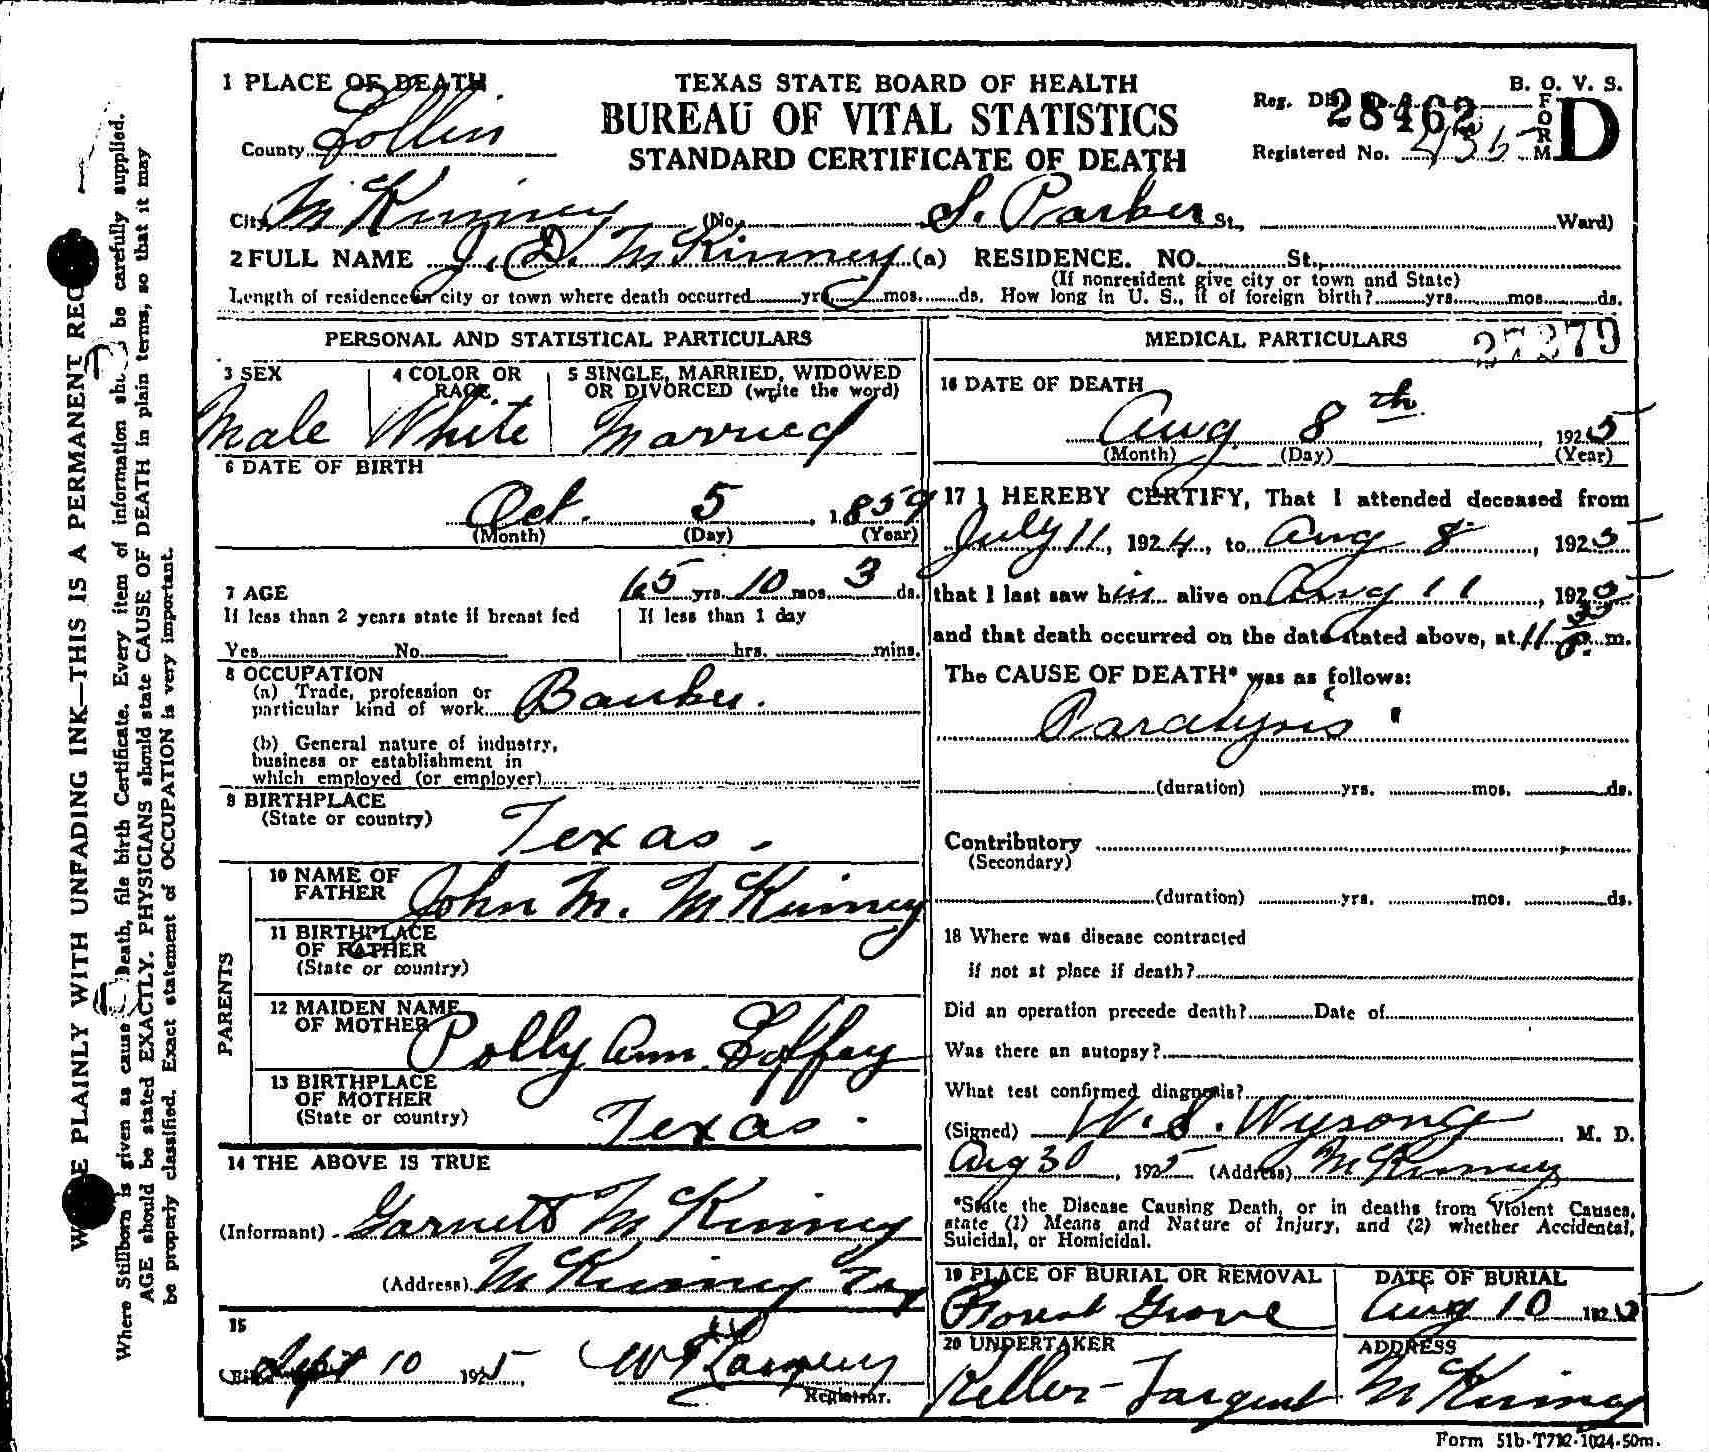 1 PLACE OF DEATH
TEXAS STATE BOARD OF HEALTH
B. O. V. S.
BUREAU OF VITAL STATISTICS
Reg. Dis. 28462
FORM D
County Collin
STANDARD CERTIFICATE OF DEATH
Registered No. 435
City McKinney (No. S. Parker St., Ward)
2 FULL NAME J. D. McKinney (a) RESIDENCE. NO. St.,
(If nonresident give city or town and State)
Length of residence in city or town where death occurred yrs. mos. ds. How long in U. S., if of foreign birth? yrs. mos. ds.
PERSONAL AND STATISTICAL PARTICULARS
3 SEX
Male
4 COLOR OR RACE
White
5 SINGLE, MARRIED, WIDOWED
OR DIVORCED (write the word)
Married
6 DATE OF BIRTH
Oct. 5, 1859
(Month) (Day) (Year)
7 AGE 65 yrs. 10 mos. 3 ds.
If less than 2 years state if breast fed
Yes No
If less than 1 day
hrs. mins.
8 OCCUPATION
(a) Trade, profession or
particular kind of work Banker.
(b) General nature of industry,
business or establishment in
which employed (or employer)
9 BIRTHPLACE
(State or country) Texas.
PARENTS
10 NAME OF
FATHER John M. McKinney
11 BIRTHPLACE
OF FATHER
(State or country)
12 MAIDEN NAME
OF MOTHER Polly Ann Coffey
13 BIRTHPLACE
OF MOTHER
(State or country) Texas.
14 THE ABOVE IS TRUE
(Informant) Garnett McKinney
(Address) McKinney Tex
15
Filed Sept 10 1925,
Registrar.
MEDICAL PARTICULARS
37379
16 DATE OF DEATH
Aug 8th, 1925
(Month) (Day) (Year)
17 I HEREBY CERTIFY, That I attended deceased from
July 11, 1924, to Aug 8, 1925
that I last saw him alive on Aug 11, 1925
and that death occurred on the date stated above, at 11 35 P. m.
The CAUSE OF DEATH* was as follows:
Paralysis
(duration) yrs. mos. ds.
Contributory
(Secondary)
(duration) yrs. mos. ds.
18 Where was disease contracted
if not at place if death?
Did an operation precede death? Date of
Was there an autopsy?
What test confirmed diagnosis?
(Signed) W. S. Wysong, M. D.
Aug 30, 1925 (Address) McKinney
*State the Disease Causing Death, or in deaths from Violent Causes,
state (1) Means and Nature of Injury, and (2) whether Accidental,
Suicidal, or Homicidal.
19 PLACE OF BURIAL OR REMOVAL
Forest Grove
DATE OF BURIAL
Aug 10 1925
20 UNDERTAKER
Keller - Sargent
ADDRESS
McKinney
Form 51b-T712-1024-50m.
PLAINLY WITH UNFADING INK—THIS IS A PERMANENT REC
Where Stillborn is given as cause Death, file birth Certificate. Every item of information be carefully supplied.
AGE should be stated EXACTLY. PHYSICIANS should state CAUSE OF DEATH in plain terms, so that it may
be properly classified. Exact statement of OCCUPATION is very important.